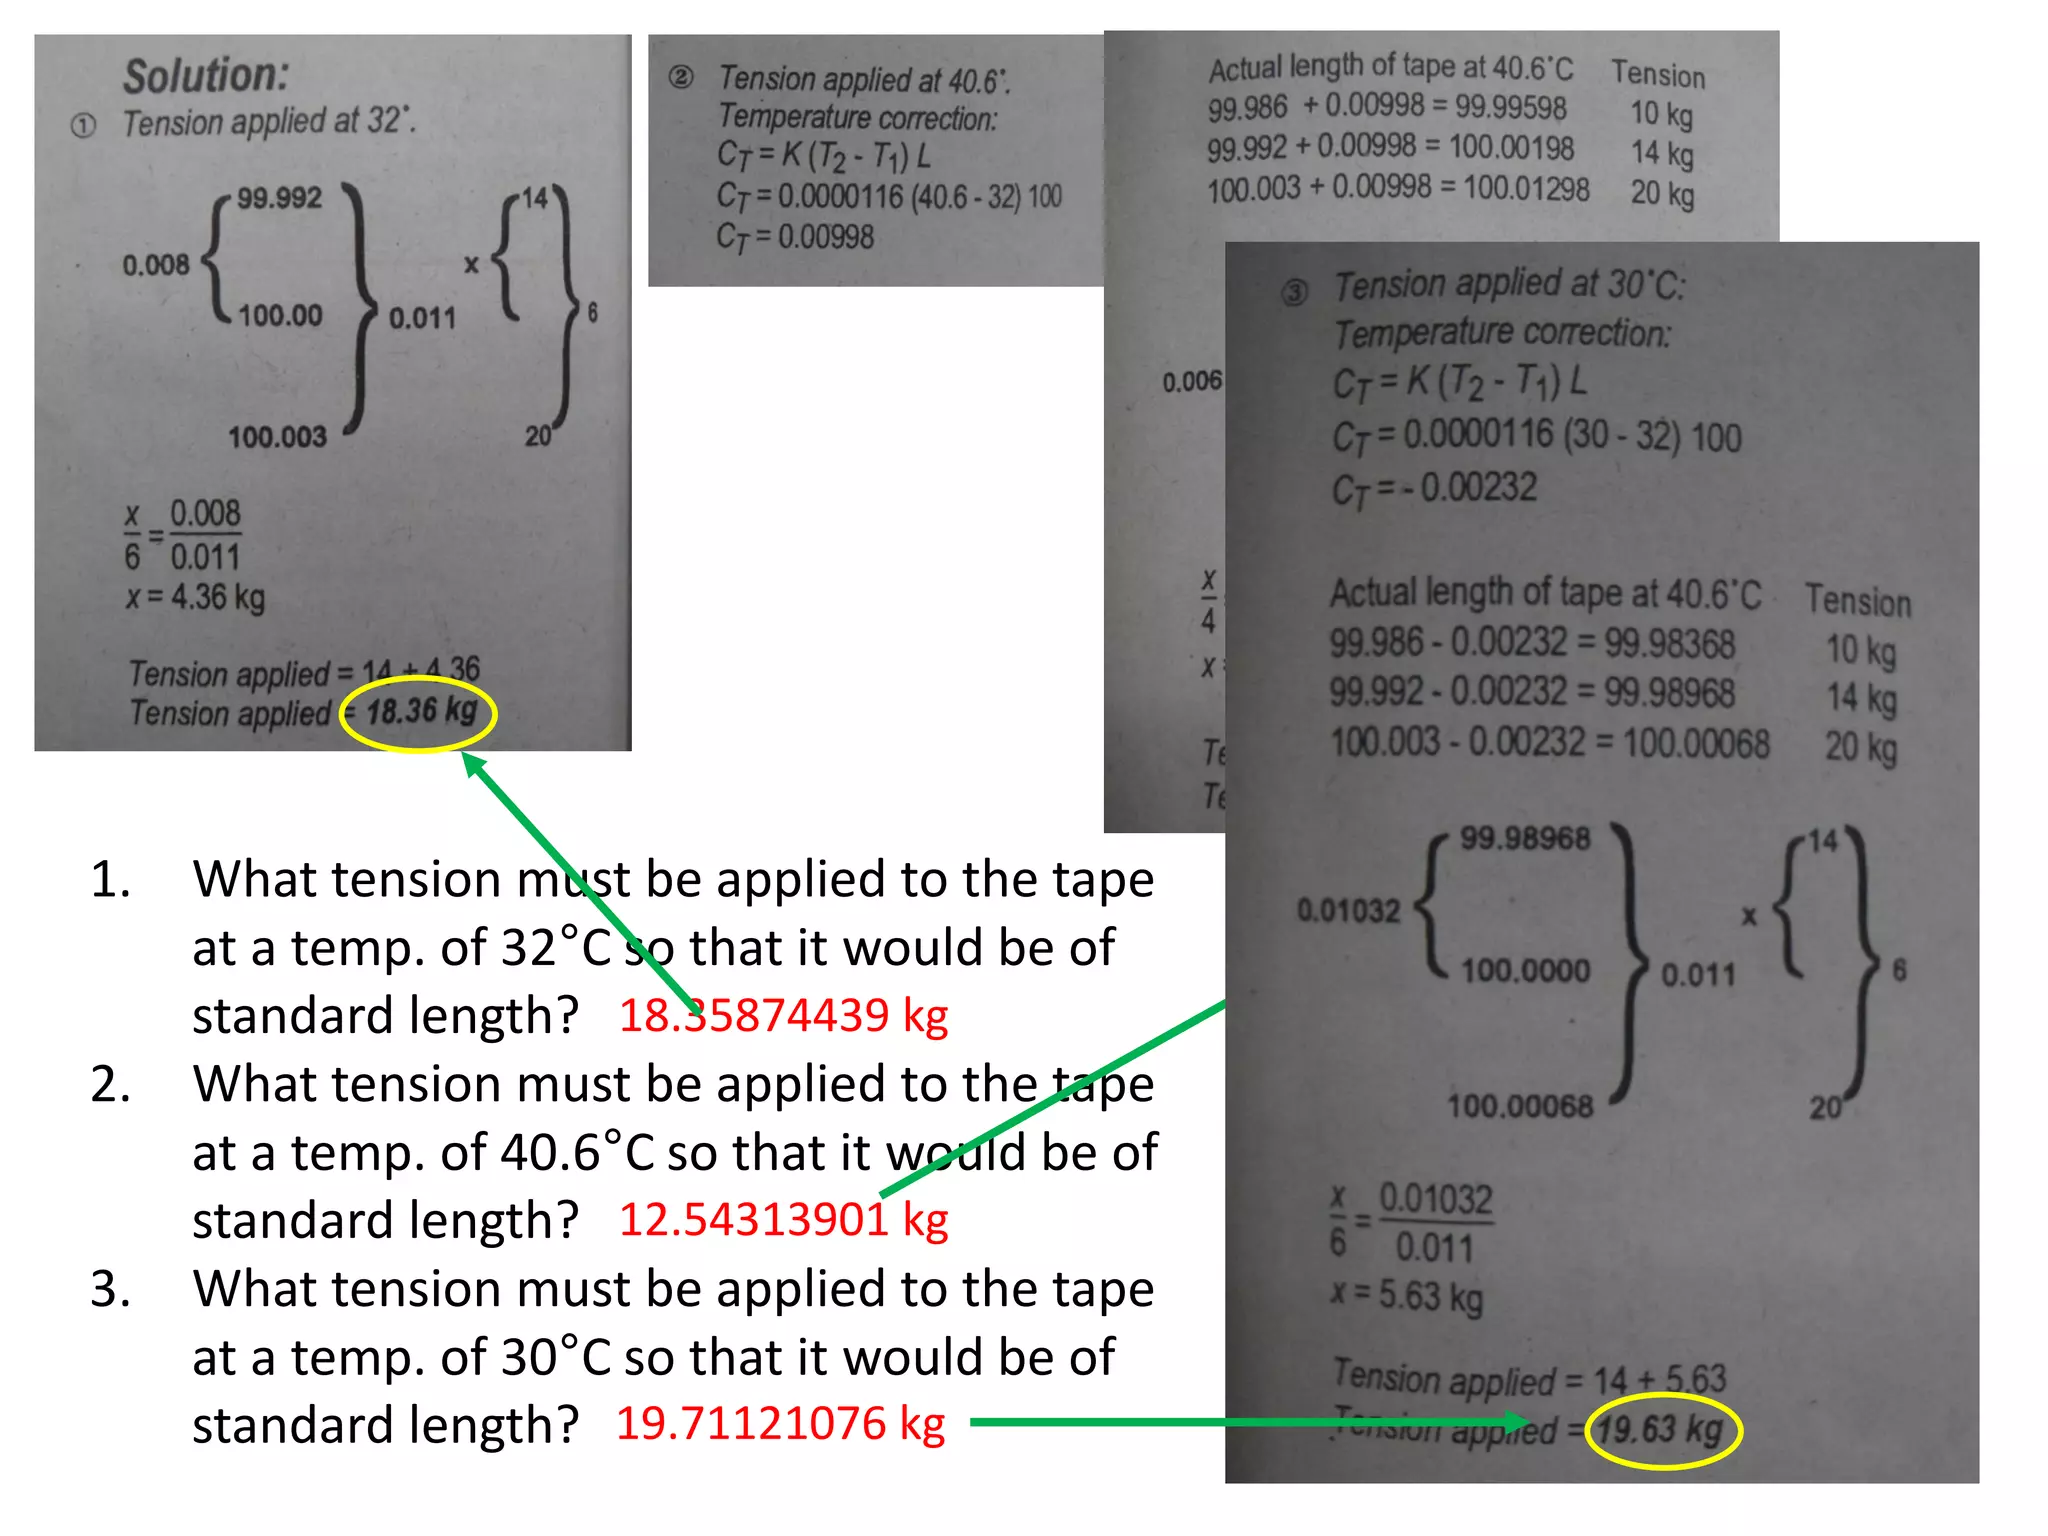 Solution:
① Tension applied at 32°.
99.992
14
0.008
x
100.00
0.011
6
100.003
20
x/6 = 0.008/0.011
x = 4.36 kg
Tension applied = 14 + 4.36
Tension applied = 18.36 kg
② Tension applied at 40.6°.
Temperature correction:
CT = K (T2 - T1) L
CT = 0.0000116 (40.6 - 32) 100
CT = 0.00998
Actual length of tape at 40.6°C Tension
99.986 + 0.00998 = 99.99598 10 kg
99.992 + 0.00998 = 100.00198 14 kg
100.003 + 0.00998 = 100.01298 20 kg
0.006
x
4
x =
③ Tension applied at 30°C:
Temperature correction:
CT = K (T2 - T1) L
CT = 0.0000116 (30 - 32) 100
CT = - 0.00232
Actual length of tape at 40.6°C Tension
99.986 - 0.00232 = 99.98368 10 kg
99.992 - 0.00232 = 99.98968 14 kg
100.003 - 0.00232 = 100.00068 20 kg
99.98968
14
0.01032
x
100.0000
0.011
6
100.00068
20
x/6 = 0.01032/0.011
x = 5.63 kg
Tension applied = 14 + 5.63
Tension applied = 19.63 kg
1. What tension must be applied to the tape
at a temp. of 32°C so that it would be of
standard length? 18.35874439 kg
2. What tension must be applied to the tape
at a temp. of 40.6°C so that it would be of
standard length? 12.54313901 kg
3. What tension must be applied to the tape
at a temp. of 30°C so that it would be of
standard length? 19.71121076 kg